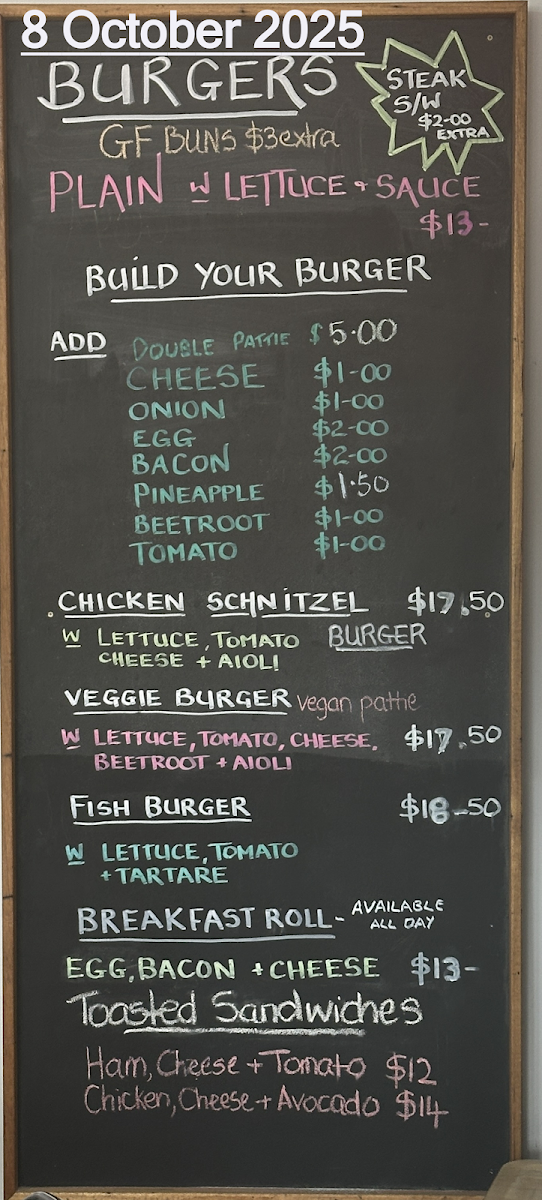 8 October 2025
BURGERS
STEAK
S/W
$2-00
EXTRA
GF BUNS $3extra
PLAIN W LETTUCE & SAUCE
$13-
BUILD YOUR BURGER
ADD DOUBLE PATTIE $5.00
CHEESE $1-00
ONION $1-00
EGG $2-00
BACON $2-00
PINEAPPLE $1.50
BEETROOT $1-00
TOMATO $1-00
CHICKEN SCHNITZEL $17.50
BURGER
W LETTUCE, TOMATO
CHEESE + AIOLI
VEGGIE BURGER vegan pattie
W LETTUCE, TOMATO, CHEESE, $17.50
BEETROOT + AIOLI
FISH BURGER $18-50
W LETTUCE, TOMATO
+ TARTARE
BREAKFAST ROLL - AVAILABLE
ALL DAY
EGG, BACON + CHEESE $13-
Toasted Sandwiches
Ham, Cheese + Tomato $12
Chicken, Cheese + Avocado $14